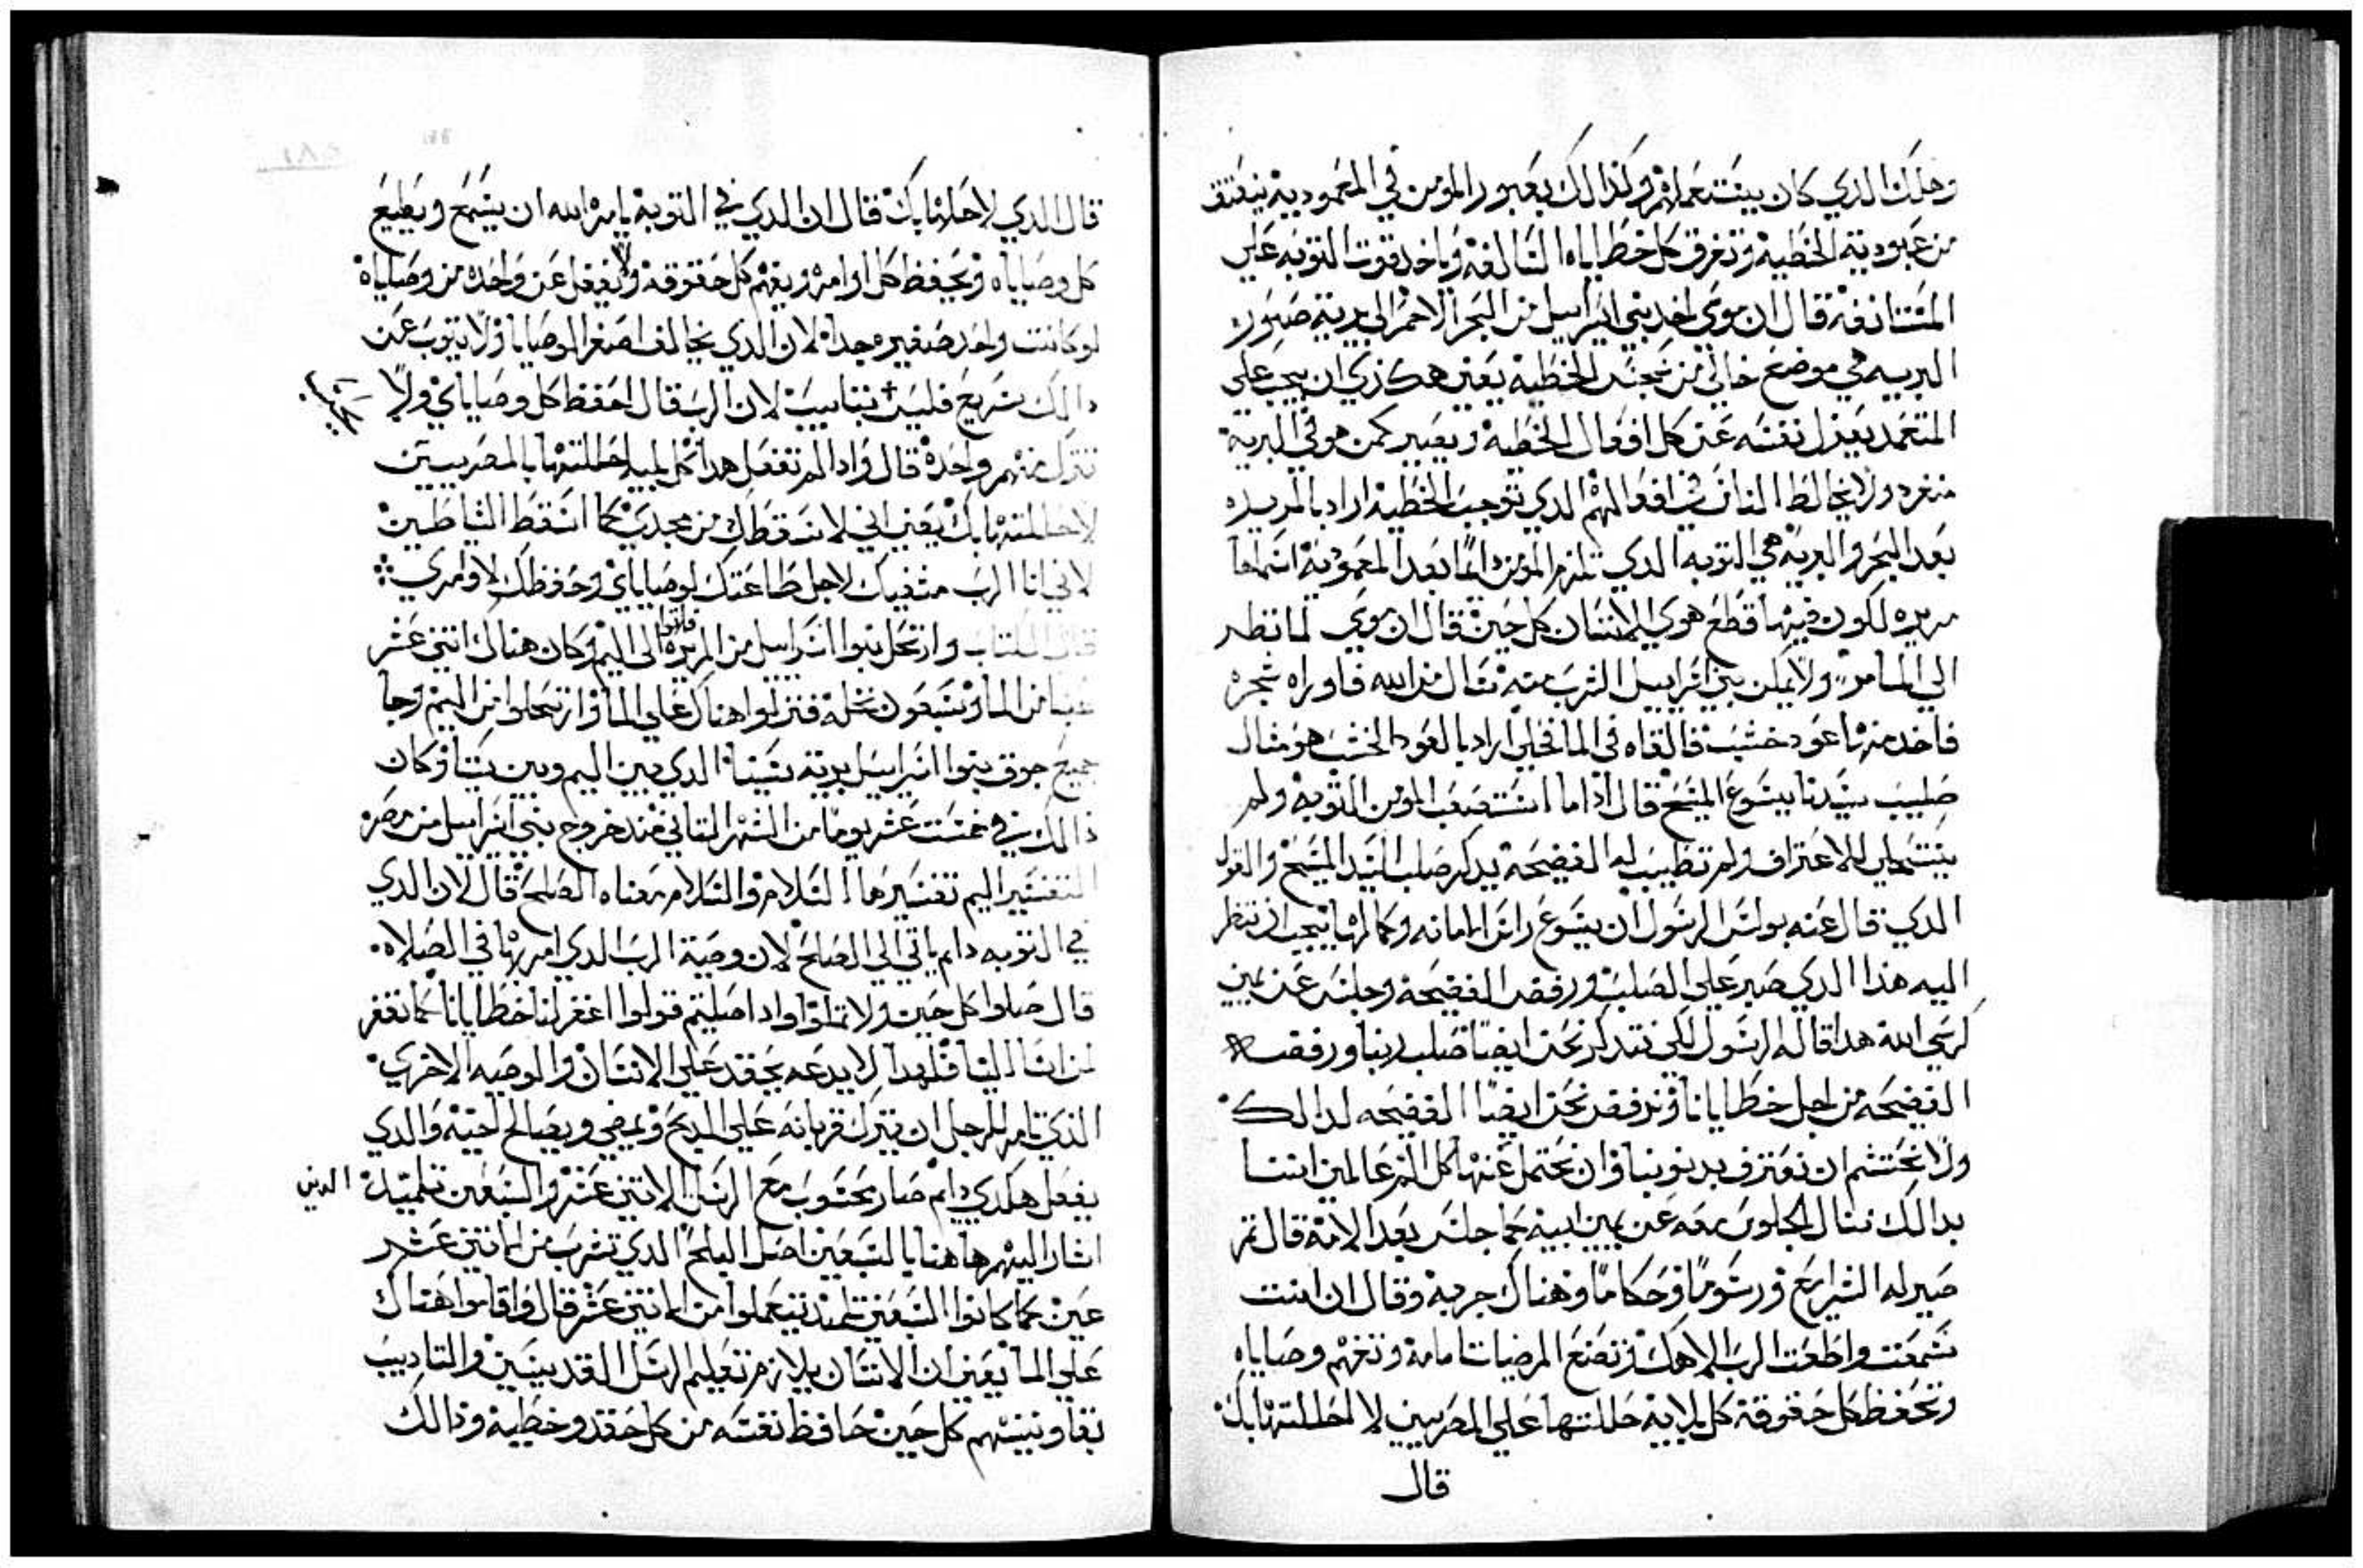 وهلك الذي كان يستعملهم وكذالك بعبور المومن في المعمودية ينعتق
من عبودية الخطية وتغرق كل خطاياه السالفة وياخد قوت التوبه علي
المستانفة قال ان موسي اخد بني اسراييل من البحر الاحمر الي برية صور
البريه في موضع خالي من الخطية يعني هكذي ان يجب علي
المتعمد يعزل نفسه عن كل افعال الخطية ويصير كمن هو في البرية
منفرد ولا يخالط الناس في افعالهم الدي توجب الخطية اراد بالمريره
بعد البحر والبرية هي التوبه الدي تلزم المومن دايمًا بعد المعمودية اسماها
مريره لكون فيها قطع هوي الانسان كل حين قال ان موسي لما نظر
الي الما مر ولا يمكن بني اسراييل الشرب منه سال من الله فاوراه شجره
فاخد منها عود خشب فالقاه في الما فحلي اراد بالعود الخشب هو مثال
صليب سيدنا يسوع المسيح قال اذا ما استصعب المومن التوبه ولم
يستحلي للاعتراف ولم تطيب له الفضيحة يدكر صلب السيد المسيح والقول
الدي قال عنه بولس الرسول ان يسوع راس الامانه وكمالها يجب ان ننظر
اليه هذا الدي صبر علي الصلب ورفض الفضيحة وجلس عن يمين
كرسي الله هدا قاله الرسول لكي نتدكر نحن ايضًا صلب ربنا ورفض
الفضيحه من اجل خطايانا ونرفض نحن ايضًا الفضيحه لدالك
ولا نحتشم ان نعترف بدنوبنا وان نحتمل عنها كل الم عالمين اننا
بدالك ننال الجلوس معه عن يمين ابيه كما جلس بعد الامه قال ثم
صير له الشرايع ورسومًا وحكامًا وهناك جربه وقال ان انت
سمعت واطعت الرب الاهك وتصنع المرضيات امامه وتفهم وصاياه
وتحفظ كل حقوقه كل بلاية حللتها علي المصريين لا احللتها بك
قال
قال الدي لاحلها بك قال ان الدي في التوبة يامره الله ان يسمع ويطيع
كل وصاياه ويحفظ كل اوامره ويفهم كل حقوقه ولا يغفل عن واحده من وصاياه
لو كانت واحده صغيره جدا لان الدي يخالف اصغر الوصايا ولا يتوب عن
دالك سريع فليس بتايب لان الرب قال احفظ كل وصاياي ولا
تترك منهم واحدة قال وادا لم تفعل هدا كل بلية احللتها بالمصريين
لاحللتها بك يعني اني لاسقطك من مجدي كما اسقط الشياطين
لاني انا الرب مشفيك لاجل طاعتك لوصاياي وحفظك لاوامري
قال الكتاب وارتحل بنوا اسراييل من المريره فاتوا الي اليم وكان هناك اتني عشر
عينا من الما وسبعون نخلة فنزلوا هناك علي الما وارتحلوا من اليم وجا
جميع جوق بنوا اسراييل برية سينا الدي بين اليم وبين سينا وكان
ذالك في خمست عشر يومًا من الشهر التاني مند خروج بني اسراييل من مصر
التفسير اليم تفسيرها السلام والسلام معناه الصلح قال لان الدي
في التوبه دايم ياتي الي الصلح لان وصية الرب الدي امر بها في الصلاه
قال صلوا كل حين ولا تملوا وادا صليتم قولوا اغفر لنا خطايانا كما نغفر
لمن اسا الينا فلهدا لا يدعه يحقد علي الانسان والوصيه الاخري
الذي تامر للرجل ان يترك قربانه علي المدبح ويمضي ويصالح اخيه والدي
يفعل هكدي دايم صار محسوب مع الرسل الاتني عشر والسبعين تلميذ الدين
اشار اليهم هاهنا بالسبعين اصل البلح الدي تشرب من الاتني عشر
عين كما كانوا السبعين تلميد يتعلموا من الاتني عشر قال واقاموا هناك
علي الما يعني ان الانسان يلازم تعليم الرسل القديسين والتاديب
بقاونينهم كل حين حافظ نفسه من كل حقد وخطية وذالك